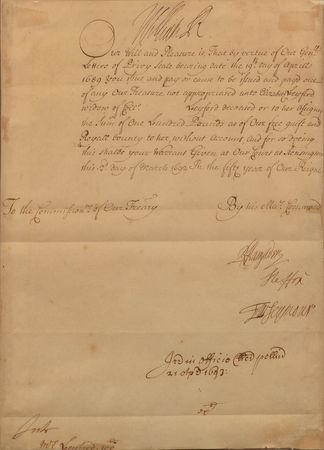 William R
Our Will and Pleasure is, That by vertue of Our Gen.ll
Letters of Privy Seale bearing date the 19th day of Aprill
1689 You Issue and pay or cause to be Issued and paid out
of any Our Treasure not appropriated unto Leyford
widow of Leyford deceased or to her Assignes
the Sum of One Hundred Pounds as of Our free guift and
Royall bounty to her, without Account, And for so doeing
this shalbe your Warrant Given at Our Court at Kensington
this day of March 1692 In the fifth year of Our Reigne
To the Commission.rs of Our Treary
By his Ma.ts Command
Ste Fox
Seymour
in officio
21 1693